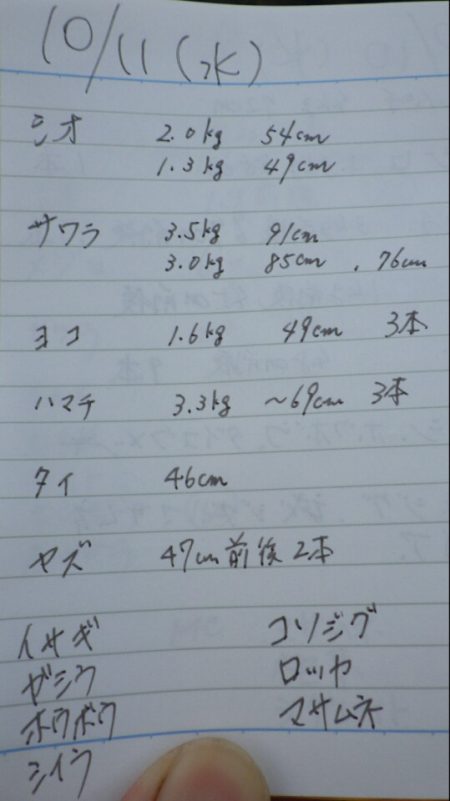 10/11 (水)
シオ 2.0kg 54cm
1.3kg 49cm
サワラ 3.5kg 91cm
3.0kg 85cm . 76cm
ヨコ 1.6kg 49cm 3本
ハマチ 3.3kg ~69cm 3本
タイ 46cm
ヤズ 47cm前後 2本
イサギ コソジグ
ヤシウ ロッヤ
ホウボウ マサムネ
シイラ